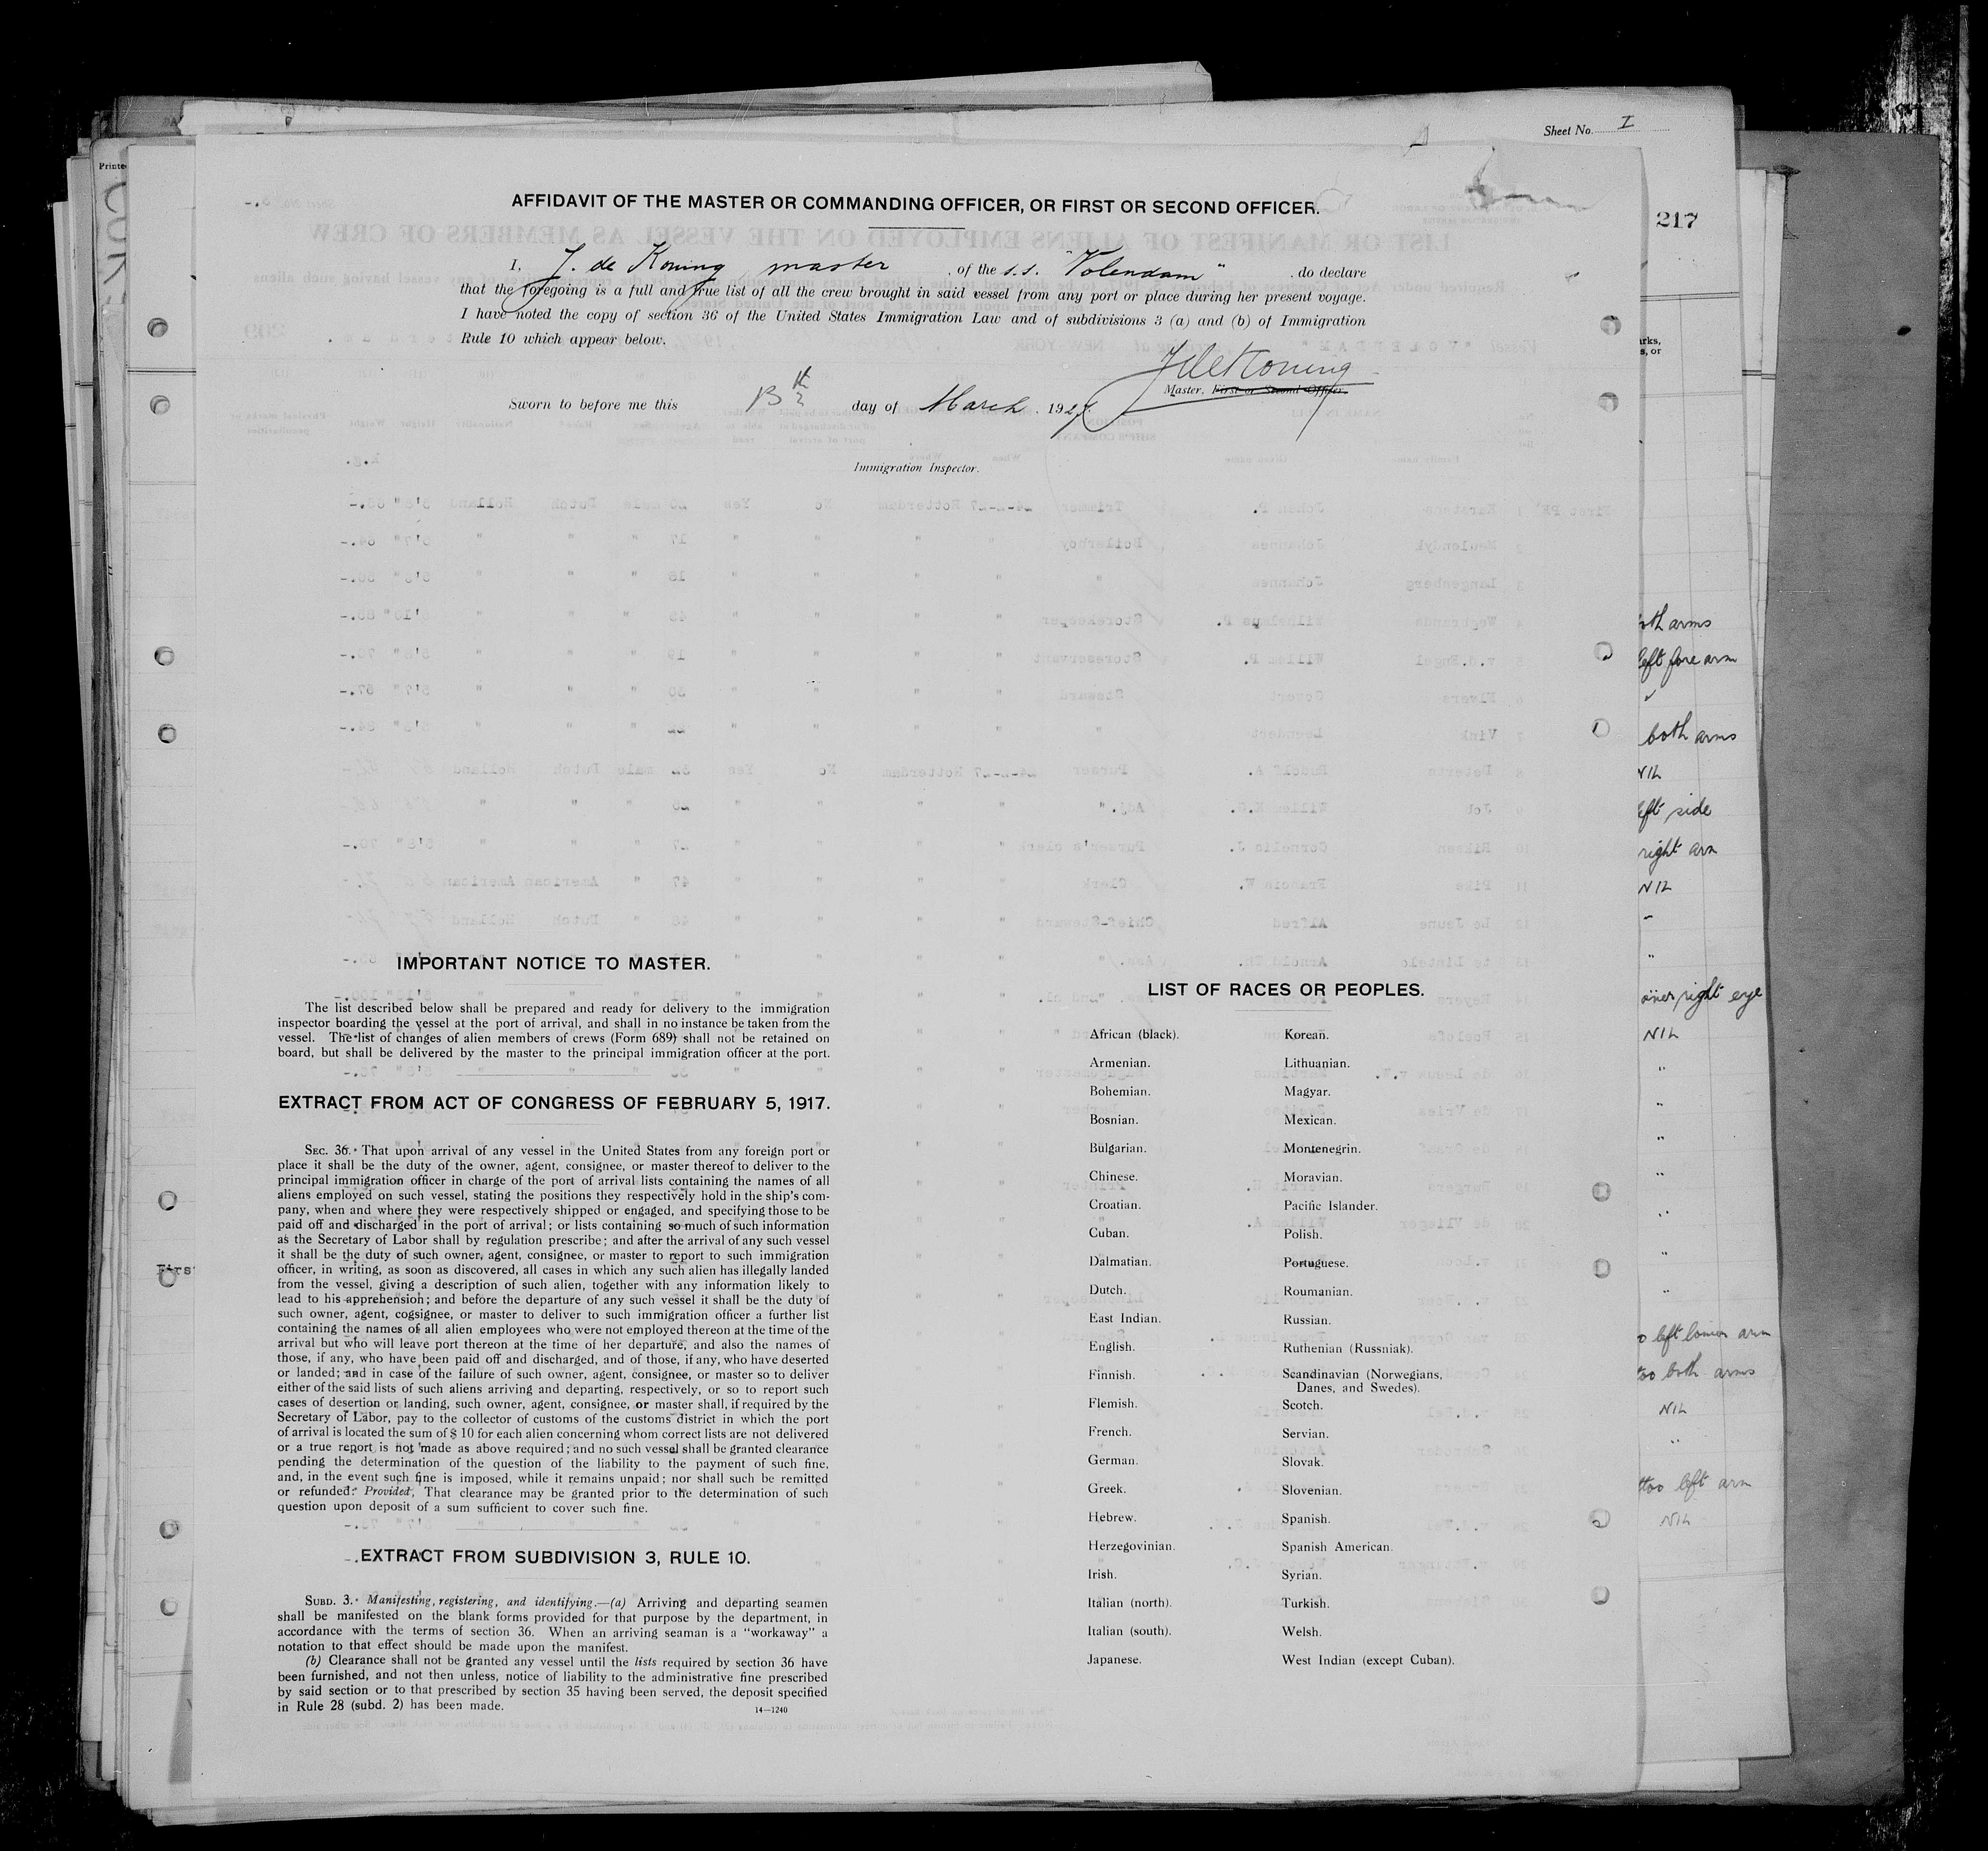 Sheet No. I
Printe
217
AFFIDAVIT OF THE MASTER OR COMMANDING OFFICER, OR FIRST OR SECOND OFFICER.
I, J. de Koning master, of the s.s. "Volendam", do declare
that the foregoing is a full and true list of all the crew brought in said vessel from any port or place during her present voyage.
I have noted the copy of section 36 of the United States Immigration Law and of subdivisions 3 (a) and (b) of Immigration
Rule 10 which appear below.
JdeKoning
Master, First or Second Officer.
Sworn to before me this 13th day of March, 1927.
Immigration Inspector.
arks,
s, or
oth arms
left fore arm
both arms
NIL
left side
right arm
NIL
"
over right eye
NIL
"
"
"
"
"
"
"
o left lower arm
too both arms
NIL
"
ttoo left arm
NIL
Firs
IMPORTANT NOTICE TO MASTER.
The list described below shall be prepared and ready for delivery to the immigration
inspector boarding the vessel at the port of arrival, and shall in no instance be taken from the
vessel. The list of changes of alien members of crews (Form 689) shall not be retained on
board, but shall be delivered by the master to the principal immigration officer at the port.
EXTRACT FROM ACT OF CONGRESS OF FEBRUARY 5, 1917.
SEC. 36. That upon arrival of any vessel in the United States from any foreign port or
place it shall be the duty of the owner, agent, consignee, or master thereof to deliver to the
principal immigration officer in charge of the port of arrival lists containing the names of all
aliens employed on such vessel, stating the positions they respectively hold in the ship's com-
pany, when and where they were respectively shipped or engaged, and specifying those to be
paid off and discharged in the port of arrival; or lists containing so much of such information
as the Secretary of Labor shall by regulation prescribe; and after the arrival of any such vessel
it shall be the duty of such owner, agent, consignee, or master to report to such immigration
officer, in writing, as soon as discovered, all cases in which any such alien has illegally landed
from the vessel, giving a description of such alien, together with any information likely to
lead to his apprehension; and before the departure of any such vessel it shall be the duty of
such owner, agent, cogsignee, or master to deliver to such immigration officer a further list
containing the names of all alien employees who were not employed thereon at the time of the
arrival but who will leave port thereon at the time of her departure, and also the names of
those, if any, who have been paid off and discharged, and of those, if any, who have deserted
or landed; and in case of the failure of such owner, agent, consignee, or master so to deliver
either of the said lists of such aliens arriving and departing, respectively, or so to report such
cases of desertion or landing, such owner, agent, consignee, or master shall, if required by the
Secretary of Labor, pay to the collector of customs of the customs district in which the port
of arrival is located the sum of $ 10 for each alien concerning whom correct lists are not delivered
or a true report is not made as above required; and no such vessel shall be granted clearance
pending the determination of the question of the liability to the payment of such fine,
and, in the event such fine is imposed, while it remains unpaid; nor shall such be remitted
or refunded: Provided, That clearance may be granted prior to the determination of such
question upon deposit of a sum sufficient to cover such fine.
EXTRACT FROM SUBDIVISION 3, RULE 10.
SUBD. 3. Manifesting, registering, and identifying.—(a) Arriving and departing seamen
shall be manifested on the blank forms provided for that purpose by the department, in
accordance with the terms of section 36. When an arriving seaman is a "workaway" a
notation to that effect should be made upon the manifest.
(b) Clearance shall not be granted any vessel until the lists required by section 36 have
been furnished, and not then unless, notice of liability to the administrative fine prescribed
by said section or to that prescribed by section 35 having been served, the deposit specified
in Rule 28 (subd. 2) has been made.
14—1240
LIST OF RACES OR PEOPLES.
African (black).
Armenian.
Bohemian.
Bosnian.
Bulgarian.
Chinese.
Croatian.
Cuban.
Dalmatian.
Dutch.
East Indian.
English.
Finnish.
Flemish.
French.
German.
Greek.
Hebrew.
Herzegovinian.
Irish.
Italian (north).
Italian (south).
Japanese.
Korean.
Lithuanian.
Magyar.
Mexican.
Montenegrin.
Moravian.
Pacific Islander.
Polish.
Portuguese.
Roumanian.
Russian.
Ruthenian (Russniak).
Scandinavian (Norwegians,
Danes, and Swedes).
Scotch.
Servian.
Slovak.
Slovenian.
Spanish.
Spanish American.
Syrian.
Turkish.
Welsh.
West Indian (except Cuban).